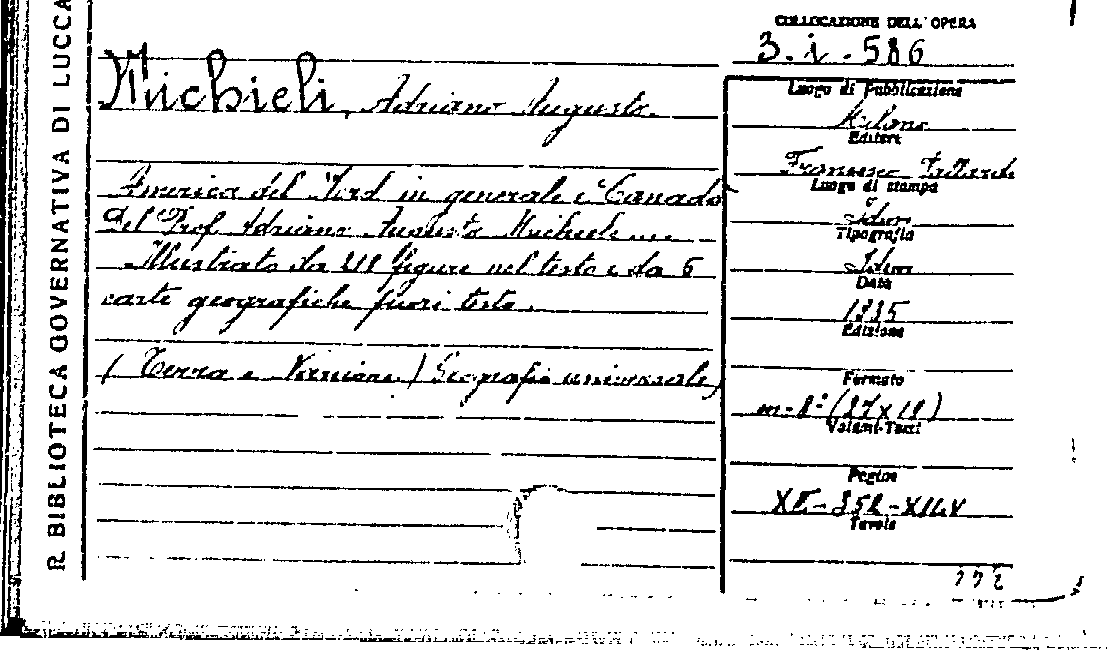 R. BIBLIOTECA GOVERNATIVA DI LUCCA
COLLOCAZIONE DELL'OPERA
3. i. 586
Michieli, Adriano Augusto.
America del Nord in generale e Canadà
Del Prof. Adriano Augusto Michieli
Illustrato da figure nel testo e da 6
carte geografiche fuori testo.
(Terra e Nazioni) Geografia universale)
Luogo di Pubblicazione
Milano
Editore
Francesco
Luogo di stampa
Idem
Tipografia
Idem
Data
Edizione
Formato
in-8° (27x18)
Volumi-Tomi
Pagine
Tavole